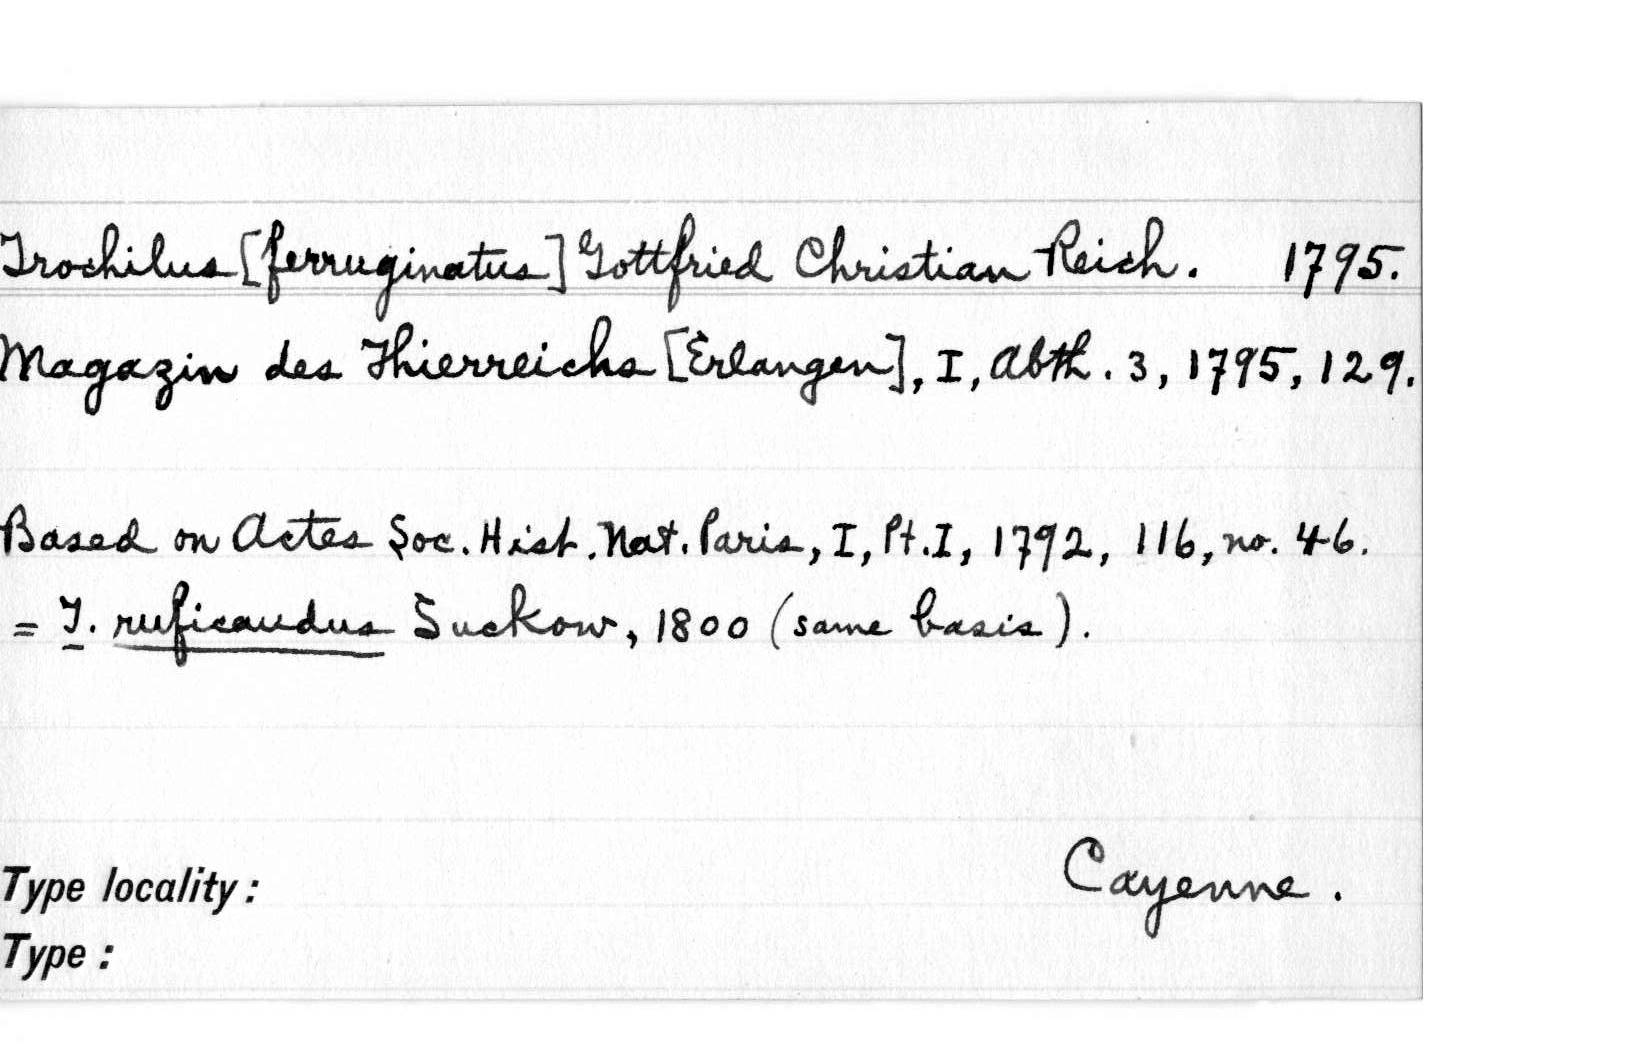 Trochilus [ferruginatus] Gottfried Christian Reich. 1795.
Magazin des Thierreichs [Erlangen], I, Abth. 3, 1795, 129.
Based on Actes Soc. Hist. Nat. Paris, I, Pt. I, 1792, 116, no. 46.
= T. ruficaudus Suckow, 1800 (same basis).
Type locality: Cayenne.
Type: